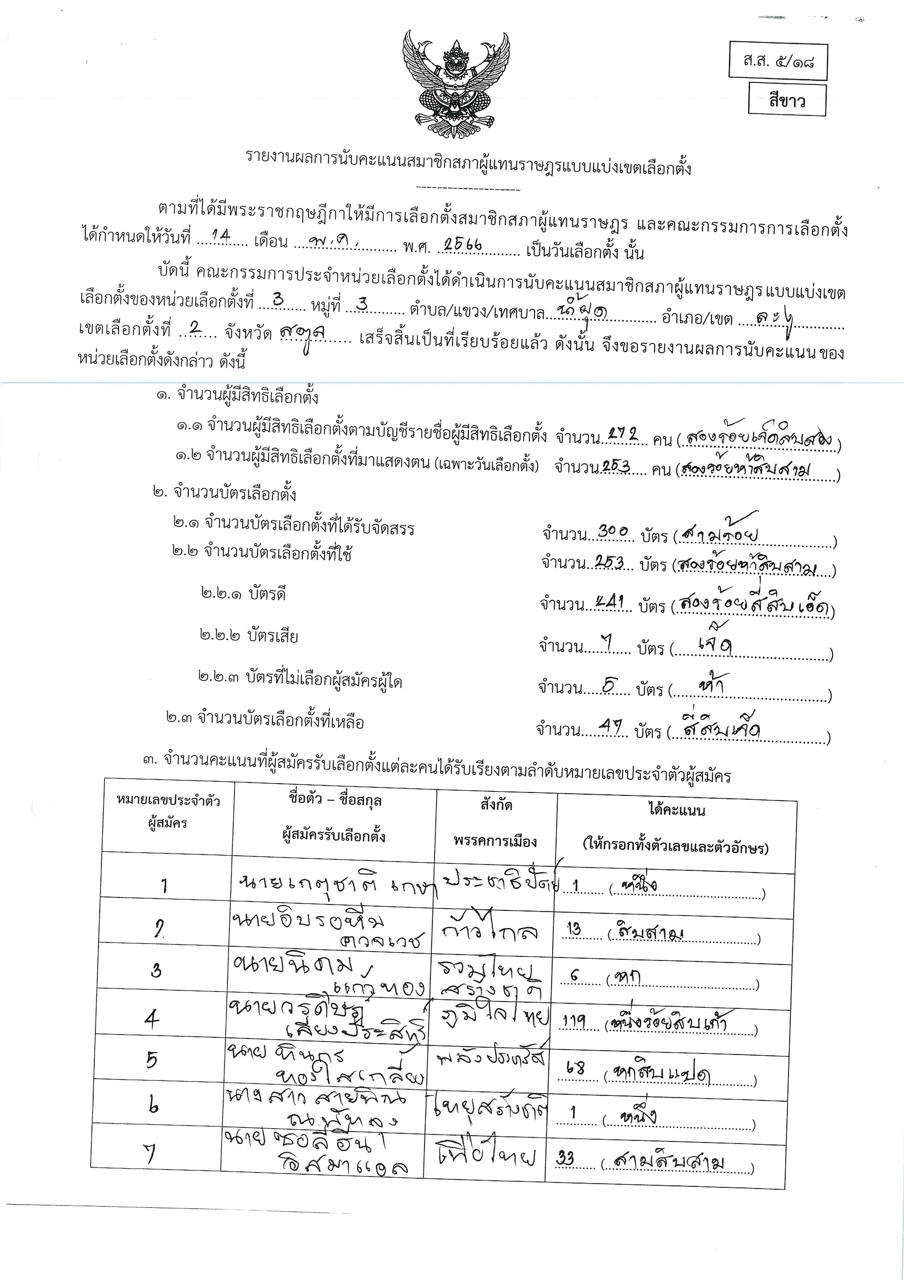 ส.ส. ๕/๑๘
สีขาว
รายงานผลการนับคะแนนสมาชิกสภาผู้แทนราษฎรแบบแบ่งเขตเลือกตั้ง
ตามที่ได้มีพระราชกฤษฎีกาให้มีการเลือกตั้งสมาชิกสภาผู้แทนราษฎร และคณะกรรมการการเลือกตั้ง
ได้กำหนดให้วันที่ 14 เดือน พ.ค. พ.ศ. 2566 เป็นวันเลือกตั้ง นั้น
บัดนี้ คณะกรรมการประจำหน่วยเลือกตั้งได้ดำเนินการนับคะแนนสมาชิกสภาผู้แทนราษฎรแบบแบ่งเขต
เลือกตั้งของหน่วยเลือกตั้งที่ 3 หมู่ที่ 3 ตำบล/แขวง/เทศบาล น้ำผุด อำเภอ/เขต ละงู
เขตเลือกตั้งที่ 2 จังหวัด สตูล เสร็จสิ้นเป็นที่เรียบร้อยแล้ว ดังนั้น จึงขอรายงานผลการนับคะแนนของ
หน่วยเลือกตั้งดังกล่าว ดังนี้
๑. จำนวนผู้มีสิทธิเลือกตั้ง
๑.๑ จำนวนผู้มีสิทธิเลือกตั้งตามบัญชีรายชื่อผู้มีสิทธิเลือกตั้ง จำนวน 272 คน (สองร้อยเจ็ดสิบสอง)
๑.๒ จำนวนผู้มีสิทธิเลือกตั้งที่มาแสดงตน (เฉพาะวันเลือกตั้ง) จำนวน 253 คน (สองร้อยห้าสิบสาม)
๒. จำนวนบัตรเลือกตั้ง
๒.๑ จำนวนบัตรเลือกตั้งที่ได้รับจัดสรร จำนวน 300 บัตร (สามร้อย)
๒.๒ จำนวนบัตรเลือกตั้งที่ใช้ จำนวน 253 บัตร (สองร้อยห้าสิบสาม)
๒.๒.๑ บัตรดี จำนวน 241 บัตร (สองร้อยสี่สิบเอ็ด)
๒.๒.๒ บัตรเสีย จำนวน 7 บัตร (เจ็ด)
๒.๒.๓ บัตรที่ไม่เลือกผู้สมัครผู้ใด จำนวน 5 บัตร (ห้า)
๒.๓ จำนวนบัตรเลือกตั้งที่เหลือ จำนวน 47 บัตร (สี่สิบเจ็ด)
๓. จำนวนคะแนนที่ผู้สมัครรับเลือกตั้งแต่ละคนได้รับเรียงตามลำดับหมายเลขประจำตัวผู้สมัคร
หมายเลขประจำตัว ชื่อตัว – ชื่อสกุล สังกัด ได้คะแนน
ผู้สมัคร ผู้สมัครรับเลือกตั้ง พรรคการเมือง (ให้กรอกทั้งตัวเลขและตัวอักษร)
1 นายเกตุชาติ เกษา ประชาธิปัตย์ 1 (หนึ่ง)
2 นายอิบรอหีม ก้าวไกล 13 (สิบสาม)
3 นายนิคม รวมไทย 6 (หก)
แก้วทอง สร้างชาติ
4 นายวรศิษฎ์ ภูมิใจไทย 119 (หนึ่งร้อยสิบเก้า)
เลียงประสิทธิ์
5 นาย พลังประชารัฐ 68 (หกสิบแปด)
6 นางสาว สายพิณ ไทยสร้างชาติ 1 (หนึ่ง)
7 นาย เพื่อไทย 33 (สามสิบสาม)
อิสมาแอล